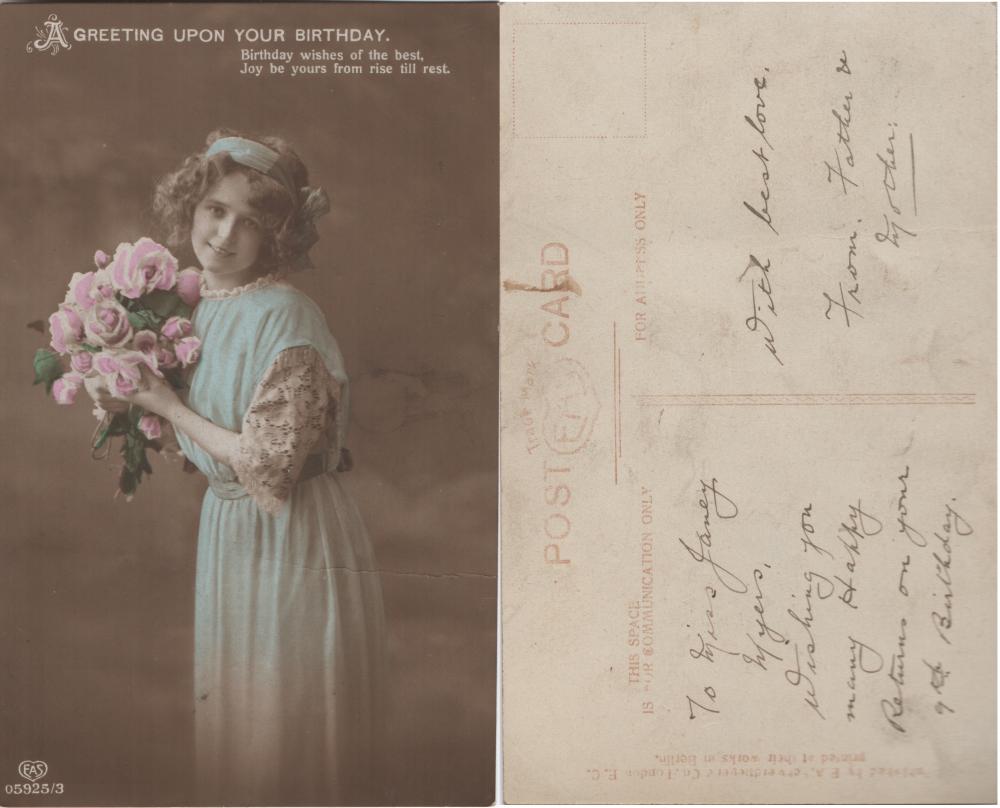 A GREETING UPON YOUR BIRTHDAY.
Birthday wishes of the best,
Joy be yours from rise till rest.
EAS
05925/3
POST CARD
Trade Mark
EAS
THIS SPACE
IS FOR COMMUNICATION ONLY
FOR ADDRESS ONLY
To Miss Janey
Myers.
Wishing you
many Happy
Returns on your
9th Birthday.
With best love.
From. Father &
Mother.
Co. London E. C.
printed at their works in Berlin.